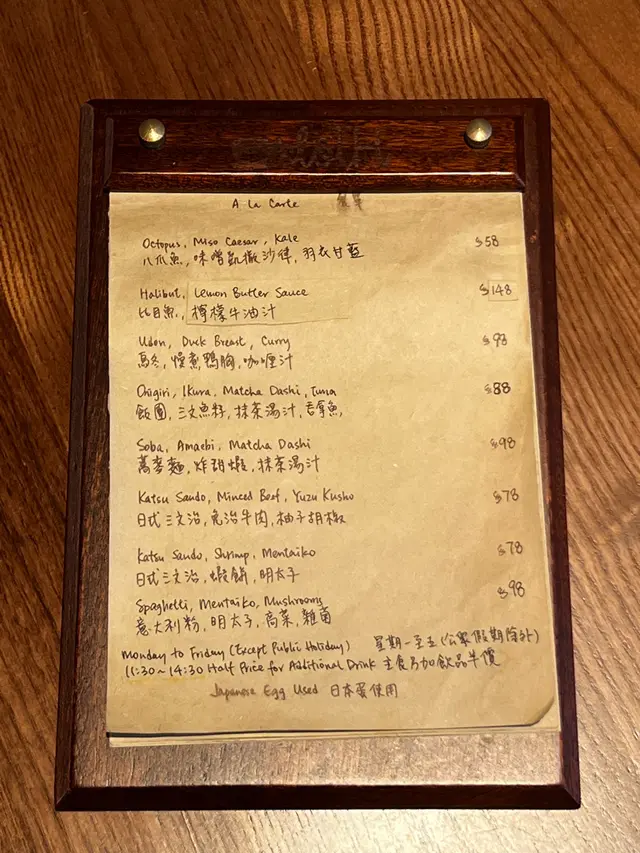 A La Carte
Octopus, Miso Caesar, Kale $58
八爪魚, 味噌凱撒沙律, 羽衣甘藍
Halibut, Lemon Butter Sauce $148
比目魚, 檸檬牛油汁
Udon, Duck Breast, Curry $98
烏冬, 慢煮鴨胸, 咖喱汁
Onigiri, Ikura, Matcha Dashi, Tuna $88
飯團, 三文魚籽, 抹茶湯汁, 吞拿魚
Soba, Amaebi, Matcha Dashi $98
蕎麥麵, 炸甜蝦, 抹茶湯汁
Katsu Sando, Minced Beef, Yuzu Kusho $78
日式三文治, 免治牛肉, 柚子胡椒
Katsu Sando, Shrimp, Mentaiko $78
日式三文治, 蝦餅, 明太子
Spaghetti, Mentaiko, Mushrooms $98
意大利粉, 明太子, 高菜, 雜菌
Monday to Friday (Except Public Holiday) 星期一至五 (公眾假期除外)
11:30~14:30 Half Price for Additional Drink 主食另加飲品半價
Japanese Egg Used 日本蛋使用